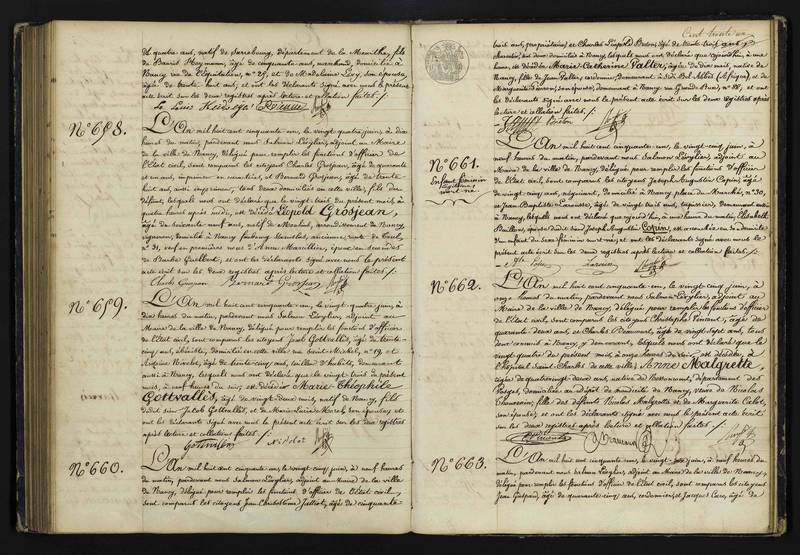 de quatre ans, natif de Sarrebourg, département de la Meurthe, fils
de Baruch Heymann, âgé de cinquante ans, marchand, domicilié à
Nancy rue de l'Equitation, nº 25, et de Madeleine Lévy, son épouse,
âgée de trente huit ans, et ont les déclarants signé avec nous le présent
acte écrit sur les deux registres après lecture et collation faites /:
Nº 658.
L'An mil huit cent cinquante-un, le vingt-quatre juin, à dix
heures du matin, pardevant nous Salmon Lévylier, adjoint au Maire
de la ville de Nancy, délégué pour remplir les fonctions d'officier de
l'Etat civil, sont comparus les citoyens Charles Grosjean, âgé de quarante
et un ans, imprimeur en caractères, et Bernard Grosjean, âgé de trente
huit ans, aussi imprimeur, tous deux domiciliés en cette ville, fils du
défunt, lesquels nous ont déclaré que le vingt-trois du présent mois, à
quatre heures après midi, est décédé Léopold Grosjean,
âgé de soixante-neuf ans, natif de arrondissement de Nancy,
vigneron, domicilié à Nancy faubourg Stanislas, ancienne route de Toul,
nº 31, veuf en premières noces d'Anne Marcillier, époux en secondes
de Barbe Guilbert, et ont les déclarants signé avec nous le présent
acte écrit sur les deux registres après lecture et collation faites /:
Charles Grosjean Bernard Grosjean
Nº 659.
L'An mil huit cent cinquante-un, le vingt-quatre juin, à
dix heures du matin, pardevant nous Salmon Lévylier, adjoint au
Maire de la ville de Nancy, délégué pour remplir les fonctions d'officier
de l'Etat civil, sont comparus les citoyens Jacob Gottvallès, âgé de trente-
cinq ans, ébéniste, domicilié en cette ville rue Saint Michel, nº 19, et
Antoine Nicolas, âgé de trente-cinq ans, tailleur d'habits, demeurant
aussi à Nancy, lesquels nous ont déclaré que le vingt-trois du présent
mois, à neuf heures du soir, est décédée Marie-Théophile
Gottvallès, âgée de vingt-deux mois, natif de Nancy, fils
dudit sieur Jacob Gottvallès, et de Marie-Louise son épouse; et
ont les déclarants signé avec nous le présent acte écrit sur les deux registres
après lecture et collation faites /:
Nº 660.
L'An mil huit cent cinquante-un, le vingt-cinq juin, à neuf heures
du matin, pardevant nous Salmon Lévylier, adjoint au Maire de la ville
de Nancy, délégué pour remplir les fonctions d'officier de l'Etat civil,
sont comparus les citoyens Jean Christôstome Jalliot, âgé de cinquante-
trois ans, propriétaire, et Charles Léopold Breton, âgé de trente-trois ans,
tous deux domiciliés à Nancy, lesquels nous ont déclaré que
est décédée Marie Catherine Valter, âgée de dix mois, native de
Nancy, fille de Jean Valter, cordonnier, demeurant à Sidi Bel Abbès (Afrique), et de
son épouse, demeurant à Nancy rue Grande Rue, nº 18, et ont
les déclarants signé avec nous le présent acte écrit sur les deux registres après
lecture et collation faites /:
Breton
Nº 661.
Enfant féminin
L'An mil huit cent cinquante-un, le vingt-cinq juin, à
neuf heures du matin, pardevant nous Salmon Lévylier, adjoint au
Maire de la ville de Nancy, délégué pour remplir les fonctions d'officier
de l'Etat civil, sont comparus les citoyens Joseph Augustin Copin, âgé
de vingt-cinq ans, négociant, domicilié à Nancy place du Marché, nº 30,
et Jean Baptiste Larousse, âgé de vingt-trois ans, tapissier, demeurant aussi
à Nancy, lesquels nous ont déclaré que aujourd'hui, à une heure du matin, Elisabeth
épouse dudit sieur Joseph Augustin Copin, est accouchée en sa domicile
d'un enfant du sexe féminin mort-né; et ont les déclarants signé avec nous le
présent acte écrit sur les deux registres après lecture et collation faites /:
Nº 662.
L'An mil huit cent cinquante-un, le vingt-cinq juin, à
onze heures du matin, pardevant nous Salmon Lévylier, adjoint au
Maire de la ville de Nancy, délégué pour remplir les fonctions d'officier
de l'Etat civil, sont comparus les citoyens Christophe Vincent, âgé de
quarante-deux ans, et Charles âgé de vingt-sept ans, tous
deux à Nancy, y demeurant, lesquels nous ont déclaré que le
vingt-quatre du présent mois, à onze heures du soir, est décédée, à
l'hôpital Saint-Charles de cette ville, Anne Malgrette,
âgée de quatre-vingt-deux ans, native de département des
Vosges, domiciliée au dépôt de mendicité de Nancy, veuve de Nicolas
fille des défunts Nicolas Malgrette et de Marguerite
son épouse; et ont les déclarants signé avec nous le présent acte écrit
sur les deux registres après lecture et collation faites /:
Nº 663.
L'An mil huit cent cinquante-un, le vingt-cinq juin, à neuf heures du
matin, pardevant nous Salmon Lévylier, adjoint au Maire de la ville de Nancy,
délégué pour remplir les fonctions d'officier de l'Etat civil, sont comparus les citoyens
Jean Gaspard, âgé de quarante-cinq ans, cordonnier, et Jacques âgé de